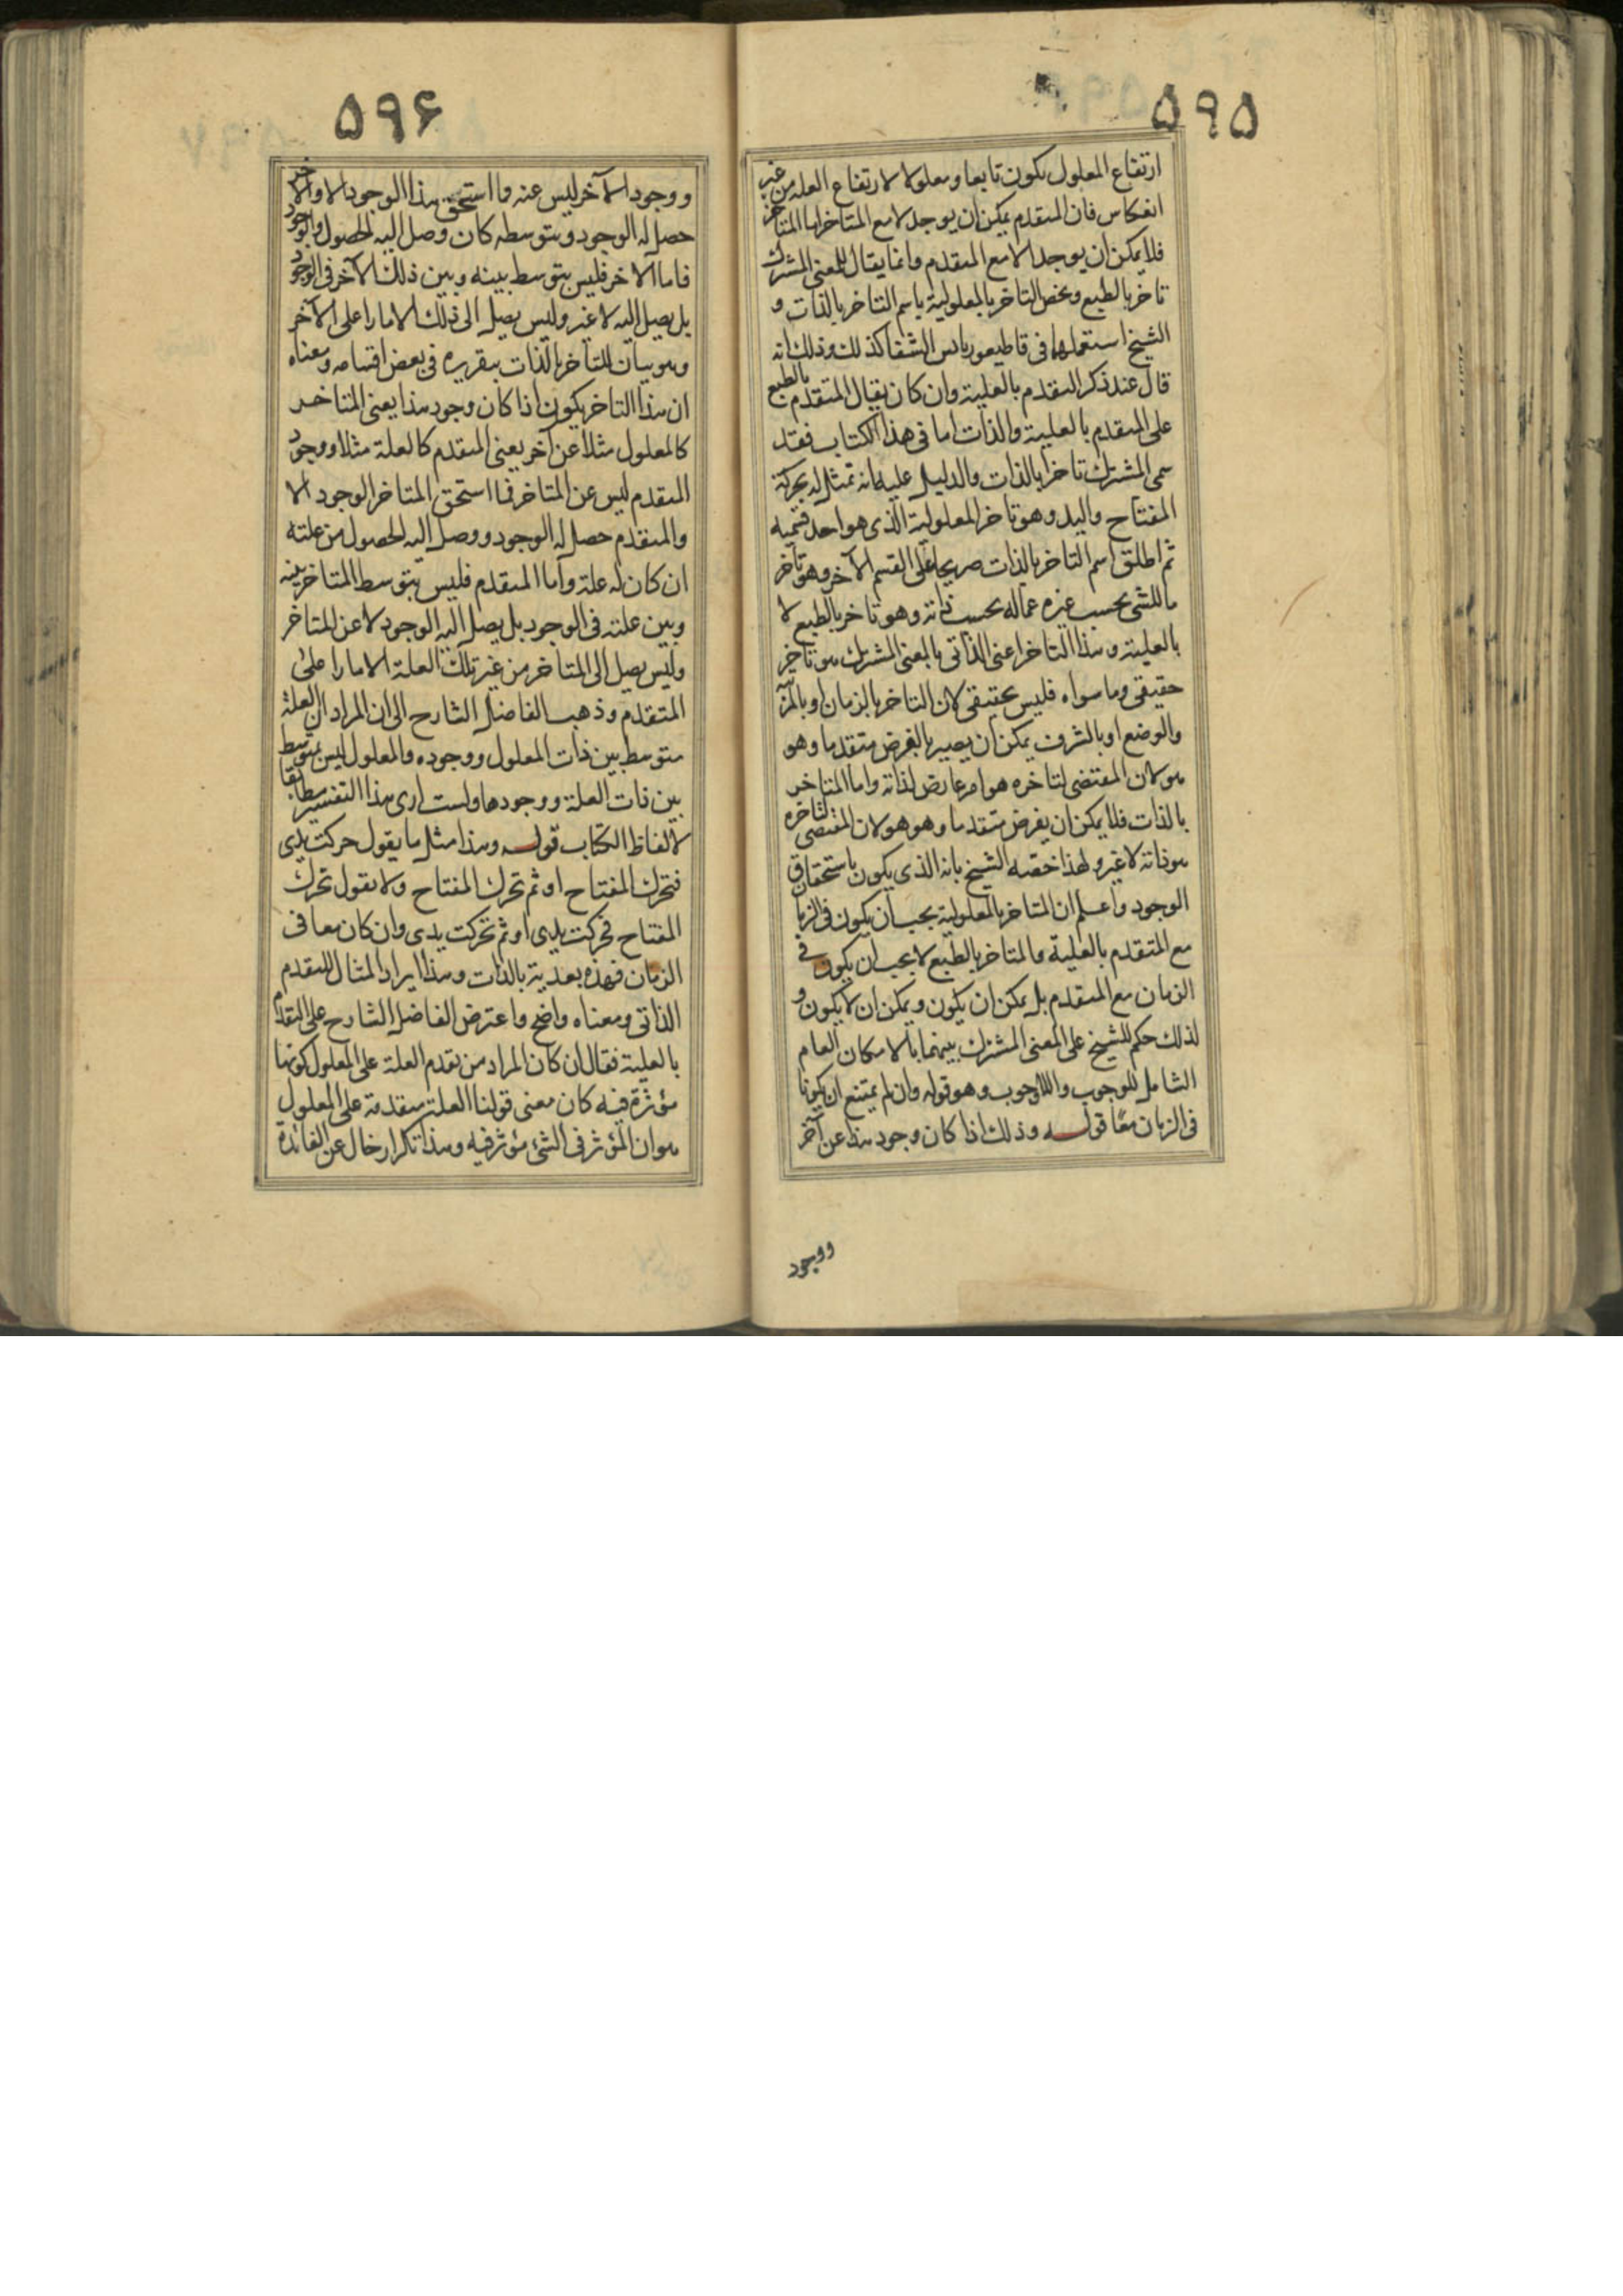 ۵۹۵
ارتفاع المعلول يكون تابعا ومعلولا لارتفاع العلة من غير
انعكاس فان المتقدم يمكن ان يوجد لا مع المتاخر اما المتاخر
فلا يمكن ان يوجد الا مع المتقدم وانما يقال للمعنى المشترك
تاخر بالطبع ويخص التاخر بالمعلولية باسم التاخر بالذات و
الشيخ استعملهما فى قاطيغورياس الشفا كذلك وذلك انه
قال عند ذكر المتقدم بالعلية وان كان يقال المتقدم بالطبع
على المتقدم بالعلية والذات اما فى هذا الكتاب فقد
سمى المشترك تاخرا بالذات والدليل عليه انه تمثل له بحركة
المفتاح واليد وهو تاخر المعلولية الذى هو احد قسميه
ثم اطلق اسم التاخر بالذات صريحا على القسم الآخر وهو تاخر
ما للشى بحسب غيره عما له بحسب ذاته وهو تاخر بالطبع لا
بالعلية وهذا التاخر اعنى الذاتى بالمعنى المشترك هو تاخر
حقيقى وما سواه فليس بحقيقى لان التاخر بالزمان او بالمرتبة
والوضع او بالشرف يمكن ان يصير بالفرض متقدما وهو
هو لان المقتضى لتاخره هو امر عارض لذاته واما المتاخر
بالذات فلا يمكن ان يفرض متقدما وهو هو لان المقتضى لتاخره
هو ذاته لا غير ولهذا خصه الشيخ بانه الذى يكون باستحقاق
الوجود واعلم ان المتاخر بالمعلولية يجب ان يكون فى الزما
مع المتقدم بالعلية والمتاخر بالطبع لا يجب ان يكون فى
الزمان مع المتقدم بل يمكن ان يكون ويمكن ان لا يكون و
لذلك حكم الشيخ على المعنى المشترك بينهما بالامكان العام
الشامل للوجوب واللاوجوب وهو قوله وان لم يمتنع ان يكونا
فى الزمان معًا قوله وذلك اذا كان وجود هذا عن آخر
ووجود
۵۹۶
ووجود الآخر ليس عنه فما استحق هذا الوجود الا والآخر
حصل له الوجود وبتوسطه كان وصل اليه الحصول والوجود
فاما الاخر فليس بتوسط بينه وبين ذلك الآخر فى الوجود
بل يصل اليه لا عنه وليس يصل الى ذلك الا مارا على الآخر
وهو بيان للتاخر بالذات بتقريره فى بعض اقسامه ومعناه
ان هذا التاخر يكون اذا كان وجود هذا يعنى المتاخر
كالمعلول مثلا عن آخر يعنى المتقدم كالعلة مثلا ووجود
المتقدم ليس عن المتاخر فما استحق المتاخر الوجود الا
والمتقدم حصل له الوجود ووصل اليه الحصول من علته
ان كان له علة واما المتقدم فليس بتوسط المتاخر بينه
وبين علته فى الوجود بل يصل اليه الوجود لا عن المتاخر
وليس يصل الى المتاخر من غير تلك العلة الا مارا على
المتقدم وذهب الفاضل الشارح الى ان المراد ان العلة
متوسط بين ذات المعلول ووجوده والمعلول ليس بمتوسط
بين ذات العلة ووجودها ولست ارى هذا التفسير مطابقا
لالفاظ الكتاب قوله وهذا مثل ما يقول حركت يدى
فتحرك المفتاح او ثم تحرك المفتاح ولا يقول تحرك
المفتاح فتحركت يدى او ثم تحركت يدى وان كان معا فى
الزمان فهذه بعدية بالذات وهذا ايراد المثال للتقدم
الذاتى ومعناه واضح واعترض الفاضل الشارح على التقدم
بالعلية فقال ان كان المراد من تقدم العلة على المعلول كونها
مؤثرة فيه كان معنى قولنا العلة متقدمة على المعلول
هو ان المؤثر فى الشئ مؤثر فيه وهذا تكرار خال عن الفائدة